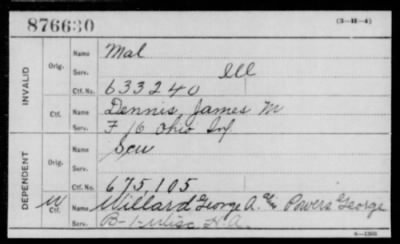 876630
(3-H-4)
INVALID
Orig.
Name Mal
Serv. Ill
Ctf. No. 633240
Ctf.
Name Dennis, James M
Serv. F 16 Ohio Inf
DEPENDENT
Orig.
Name
Serv.
Ctf. No. 675,105
W Ctf.
Name Willard George A. Powers George
Serv. B-1- H.A.